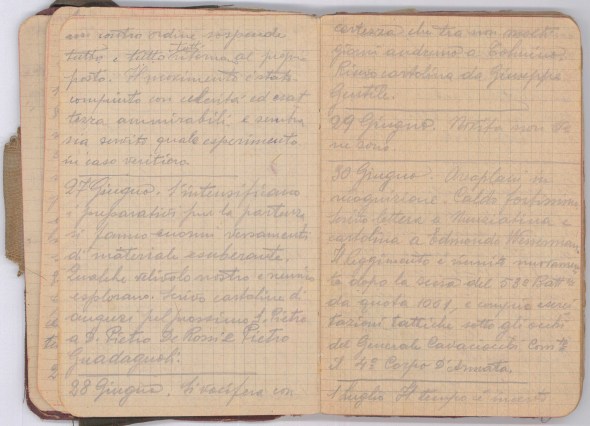 un contro ordine sospende
tutto e tutto torna al proprio
posto. Il movimento è stato
compiuto con celerità ed esat
tezza ammirabili e sembra
sia servito quale esperimento
in caso veritiero.
27 Giugno. S'intensificano
i preparativi per la partenza
si fanno enormi versamenti
di materiale esuberante.
Qualche velivolo nostro e nemico
esplorano. Scrivo cartoline di
auguri pel prossimo S. Pietro
a S. Pietro De Rossi e Pietro
Guadagnoli.
28 Giugno. Si vocifera con
certezza che tra non molti
giorni andremo a Tolmino.
Ricevo cartolina da Giuseppe
Gentile.
29 Giugno. Novità non ve
ne sono.
30 Giugno. Aeroplani in
ricognizione. Caldo fortissimo
Invio lettera a
cartolina a Edmondo
Il Reggimento è riunito nuovamen
te dopo la scesa del 53º Batt.
da quota 1001, e compie eserci
tazioni tattiche sotto gli occhi
del Generale Cavaciocchi Com.te
Il 4º Corpo D'Armata.
1 Luglio Il tempo è incerto